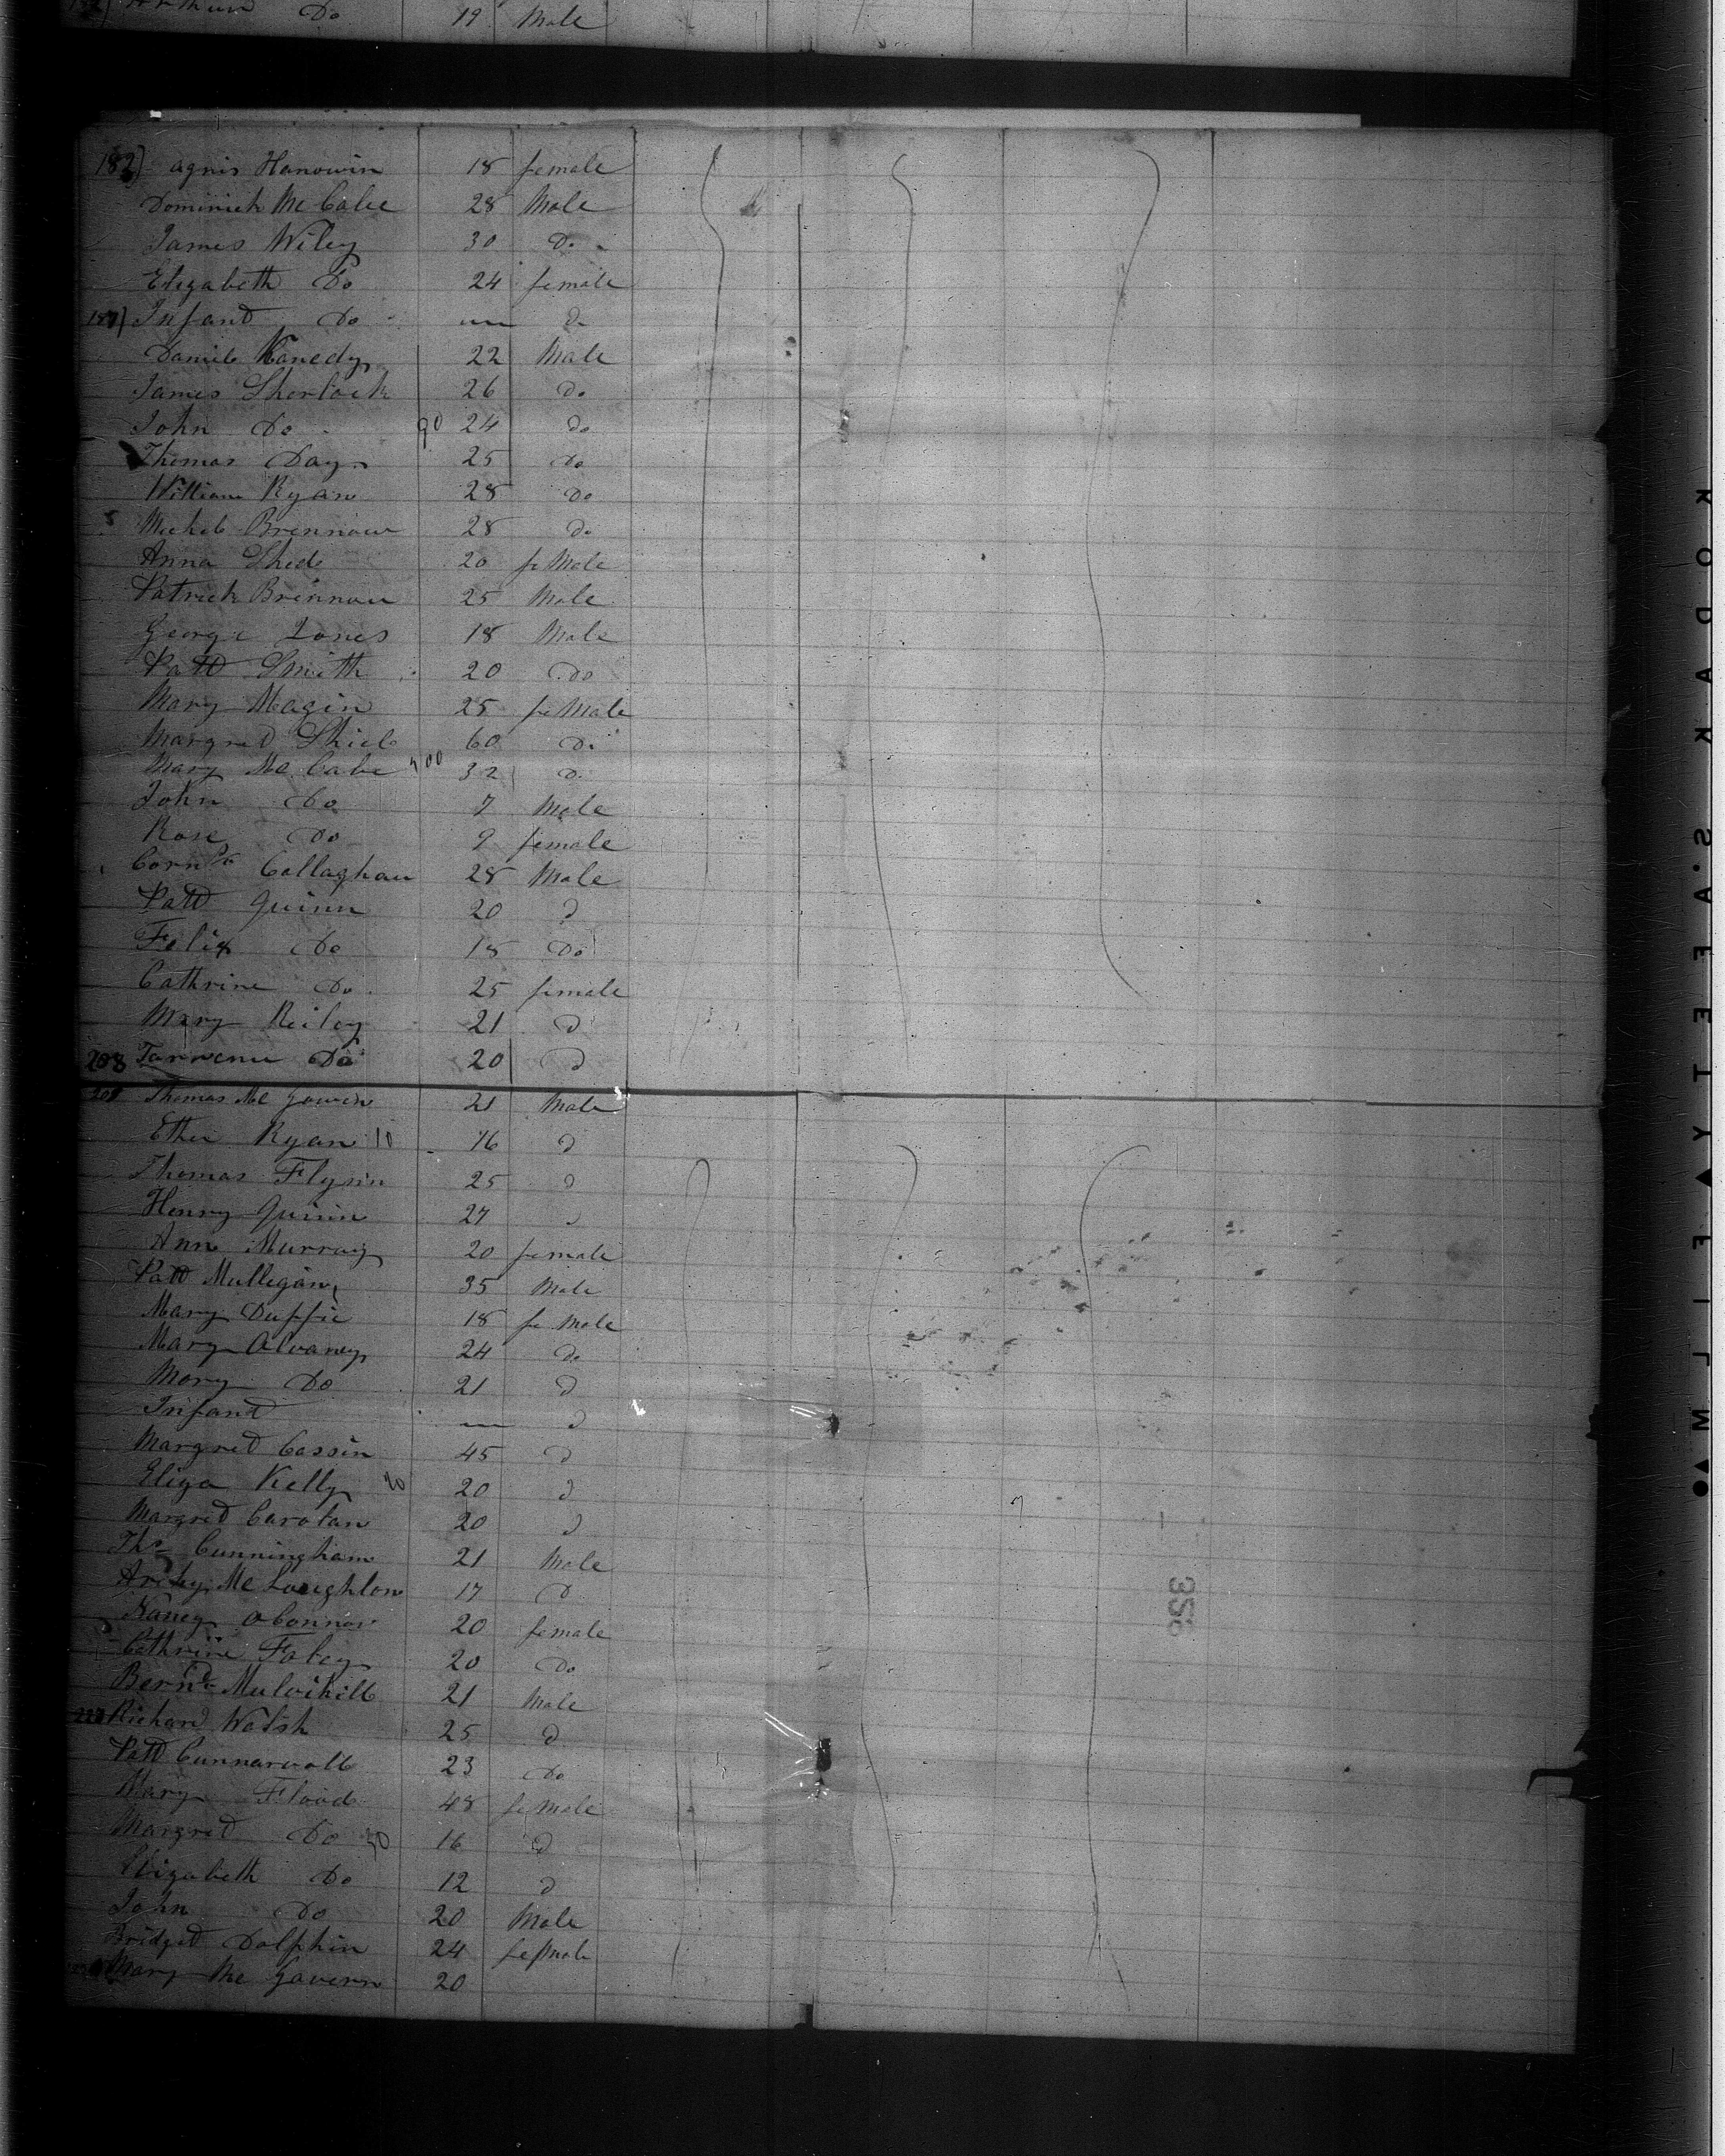 Do 19 Male
182) Agnis Hanowin 18 female
Dominick Mc Cabe 28 Male
James Wiley 30 Do
Elizabeth Do 24 female
187) Infand Do — Do
Daniel Kanedy 22 Male
James Sherlock 26 Do
John Do 90 24 Do
Thomas Day 25 Do
William Ryan 28 Do
5 Michel Brennan 28 Do
Anna Shed 20 feMale
Patrick Brennan 25 Male
George Jones 18 Male
Patt Smith 20 Do
Mary Magin 25 feMale
Margred Shiel 60 Do
Mary Mc Cabe 200 32 D
John Do 7 Male
Rose Do 9 female
Corns Callaghan 28 Male
Patt Quinn 20 D
Felix Do 18 Do
Cathrine Do 25 female
Mary Reiley 21 D
208 Do 20 D
Thomas Mc Gowen 21 Male
Ryan 10 16 D
Thomas Flynn 25 D
Henry Quinn 27 D
Ann Murray 20 female
Patt Mulligan 35 Male
Mary Duffie 18 feMale
Mary Olvaney 24 Do
Mary Do 21 D
Infand — D
Margred Cassin 45 D
Eliza Kelly 20 20 D
Margred Carolan 20 D
Ths Cunningham 21 Male
Mc Loughlon 17 D
Nancy OConnor 20 female
Cathrine Faley 20 Do
Bernd Mulvihill 21 Male
Richard Walsh 25 D
Patt 23 Do
Mary Flood 48 feMale
Margred Do 30 16 D
Elizabeth Do 12 D
John Do 20 Male
Bridged Dolphin 24 feMale
Mary Mc Gavern 20
356
KODAK S'AFETY FILM